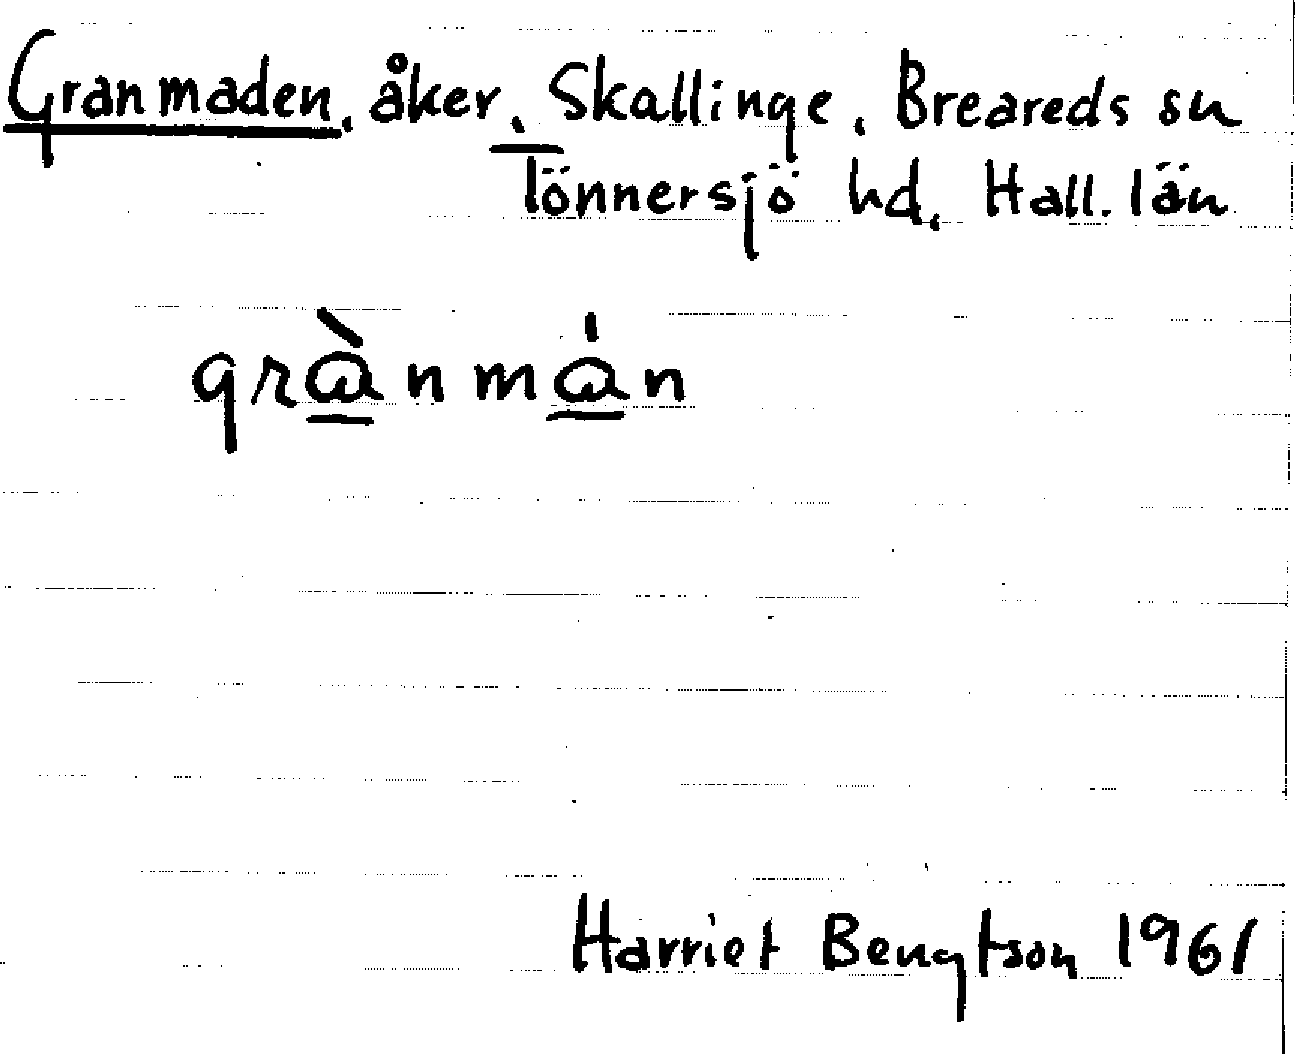 Granmaden, åker, Skallinge, Breareds sn
Tönnersjö hd, Hall. län
grɑ̀nmɑ́n
Harriet Bengtson 1961